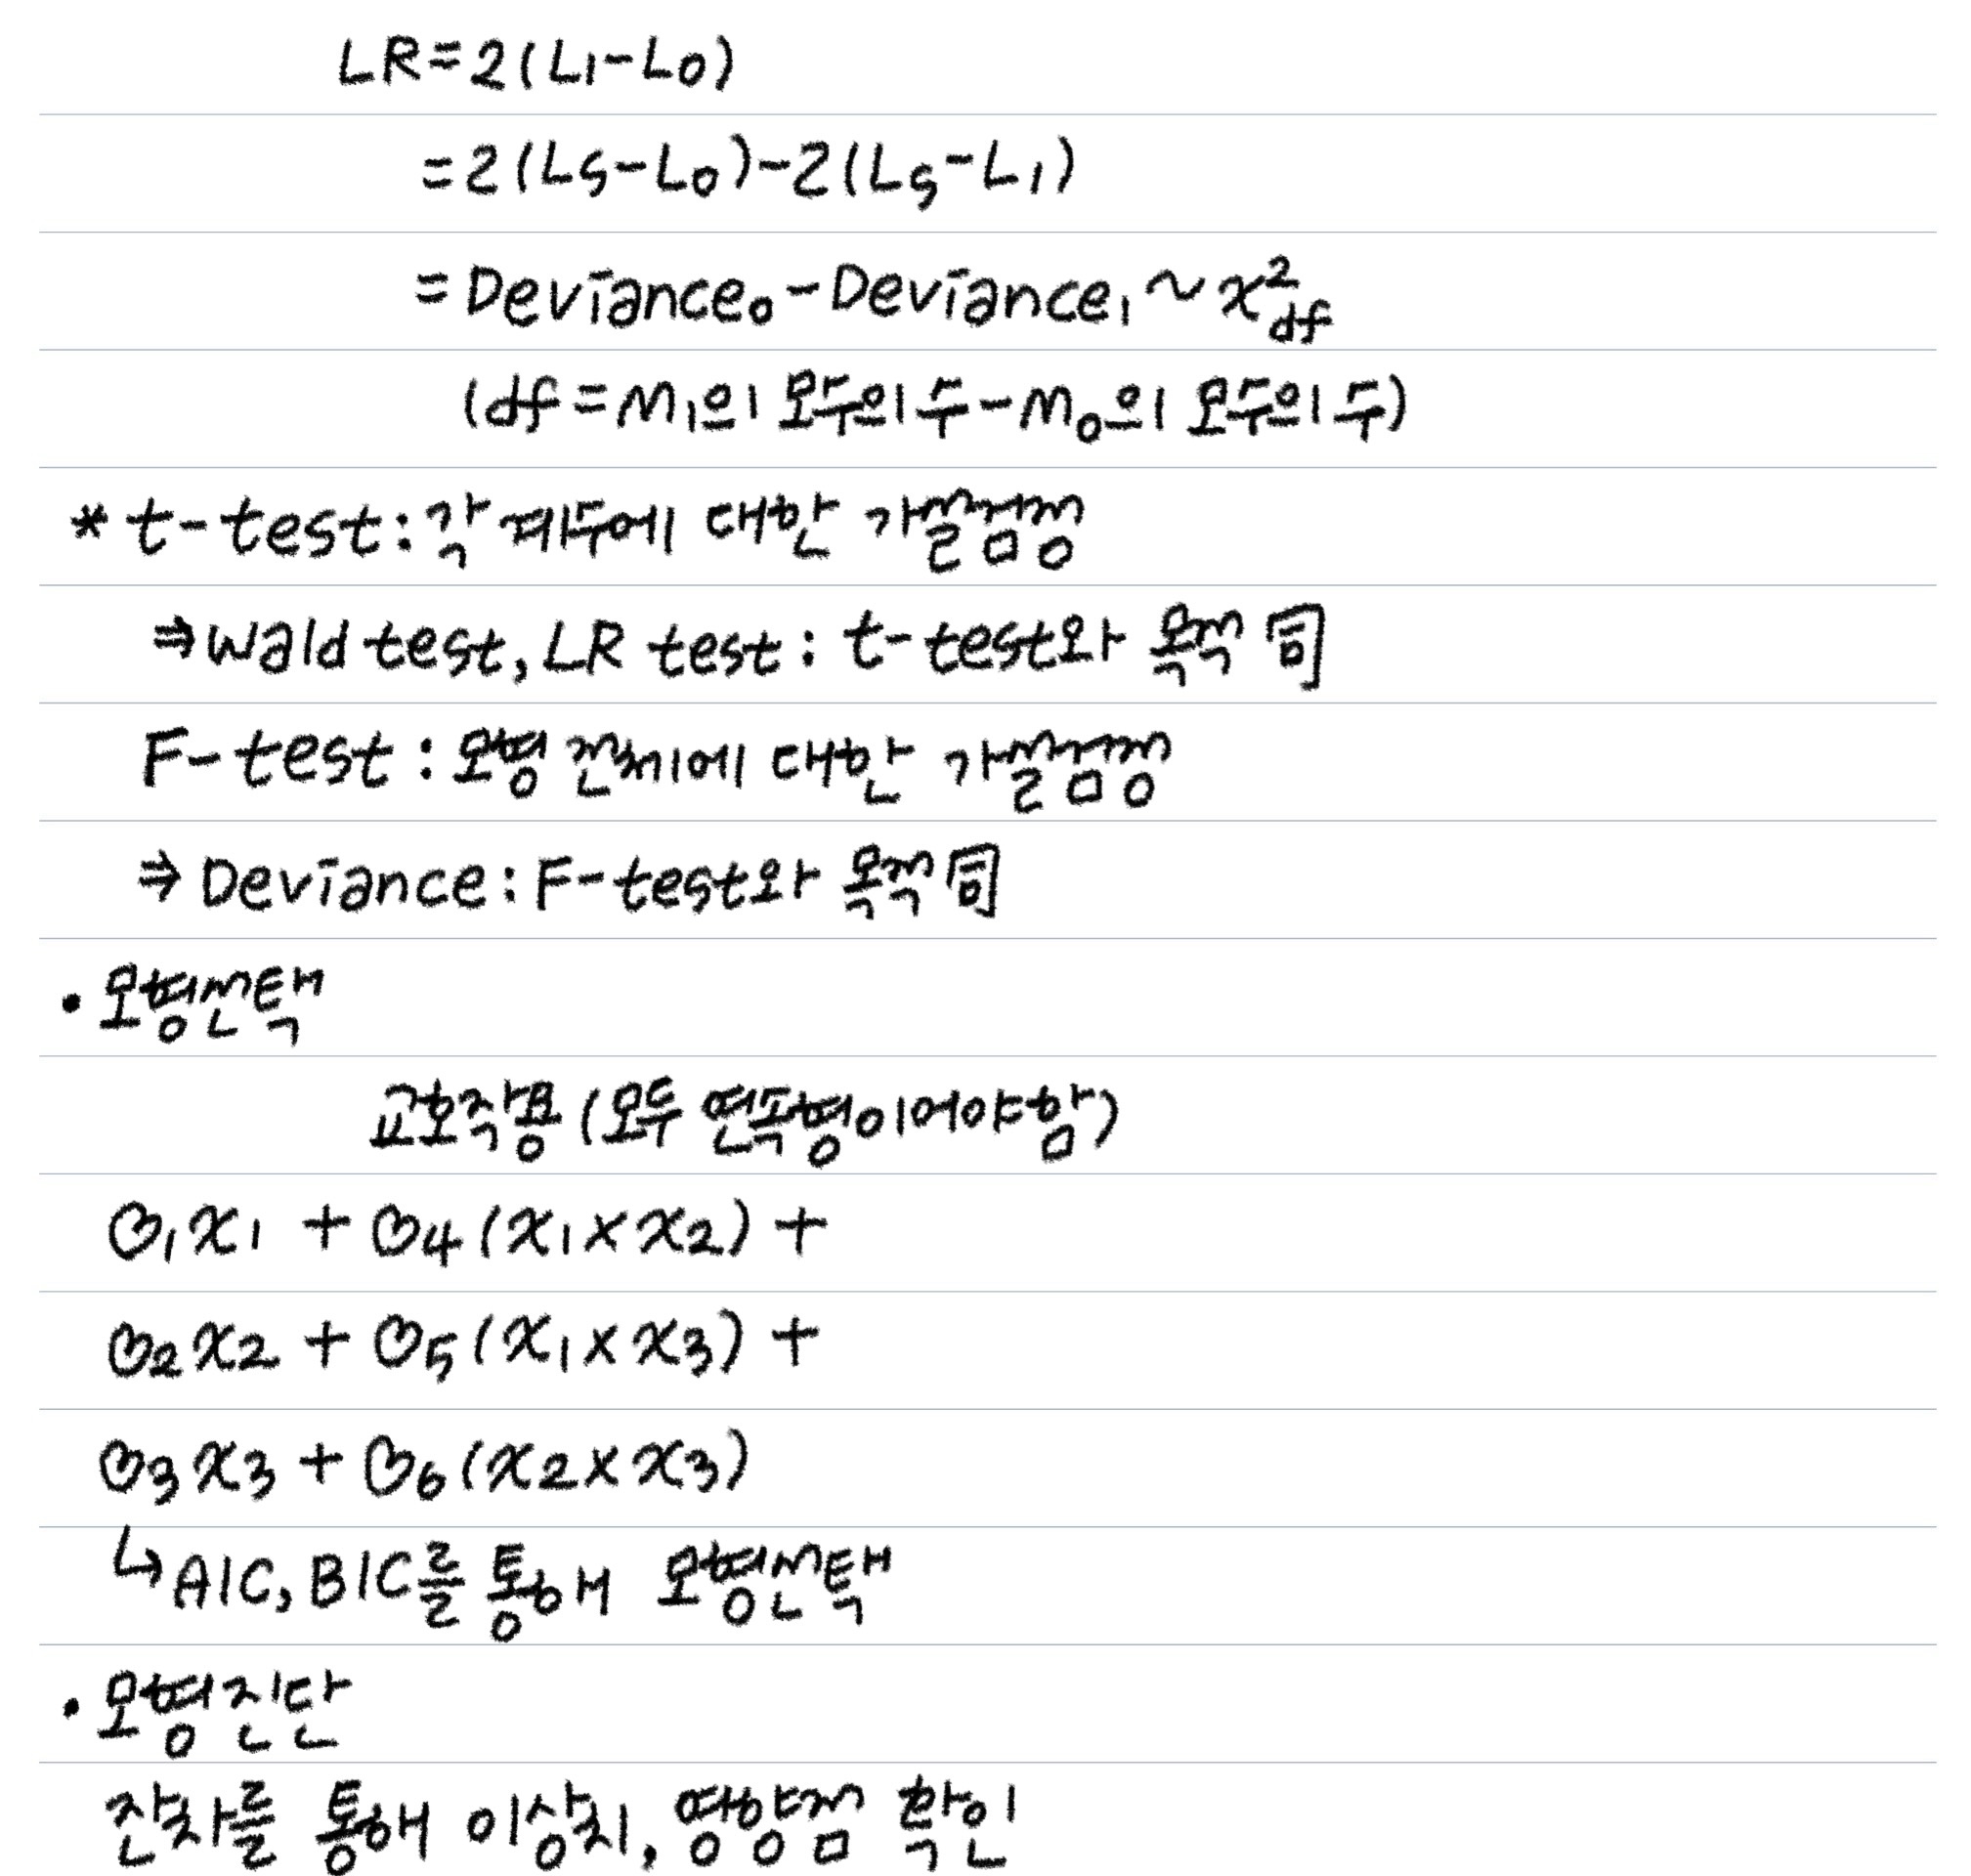 LR=2(L₁-L₀)
=2(Ls-L₀)-2(Ls-L₁)
=Deviance₀-Deviance₁~χ²df
(df=M₁의 모수의 수-M₀의 모수의 수)
* t-test:각 계수에 대한 가설검정
⇒Wald test, LR test: t-test와 목적 同
F-test:모형 전체에 대한 가설검정
⇒Deviance:F-test와 목적 同
•모형선택
교호작용(모두 연속형이어야함)
β₁x₁+β₄(x₁×x₂)+
β₂x₂+β₅(x₁×x₃)+
β₃x₃+β₆(x₂×x₃)
↳AIC, BIC를 통해 모형선택
•모형진단
잔차를 통해 이상치, 영향점 확인